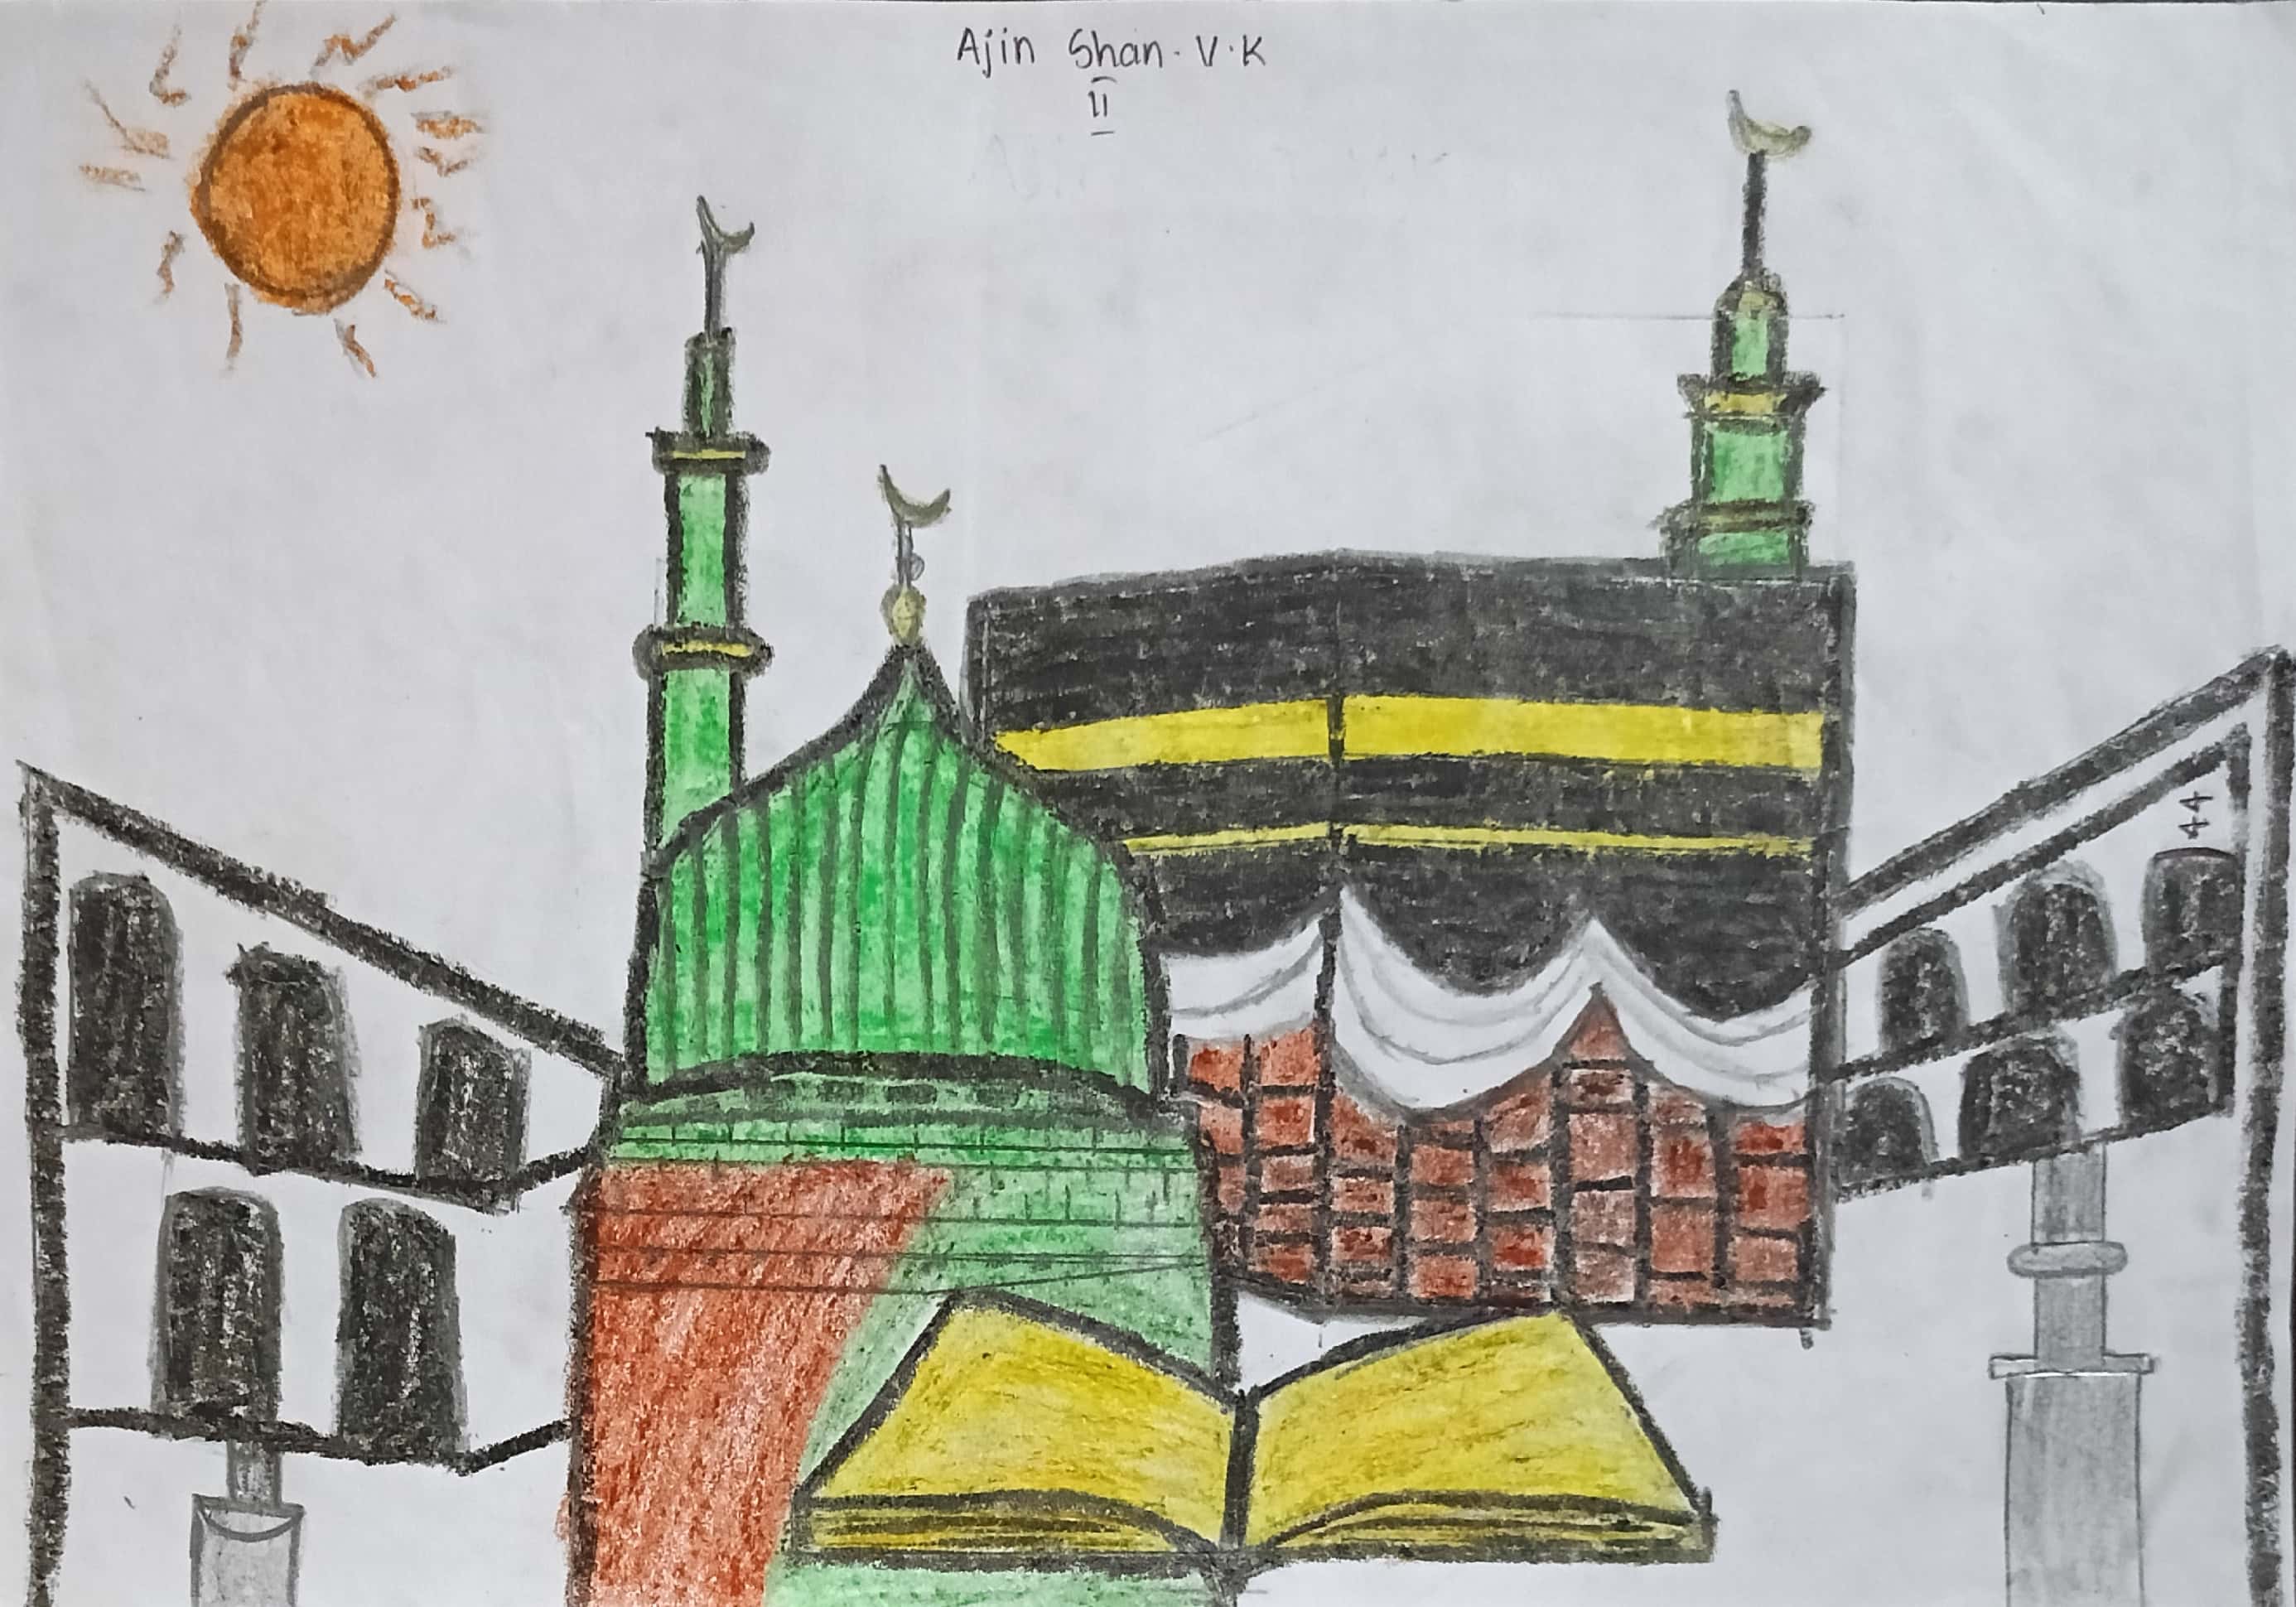 Ajin Shan. V. K
II
44